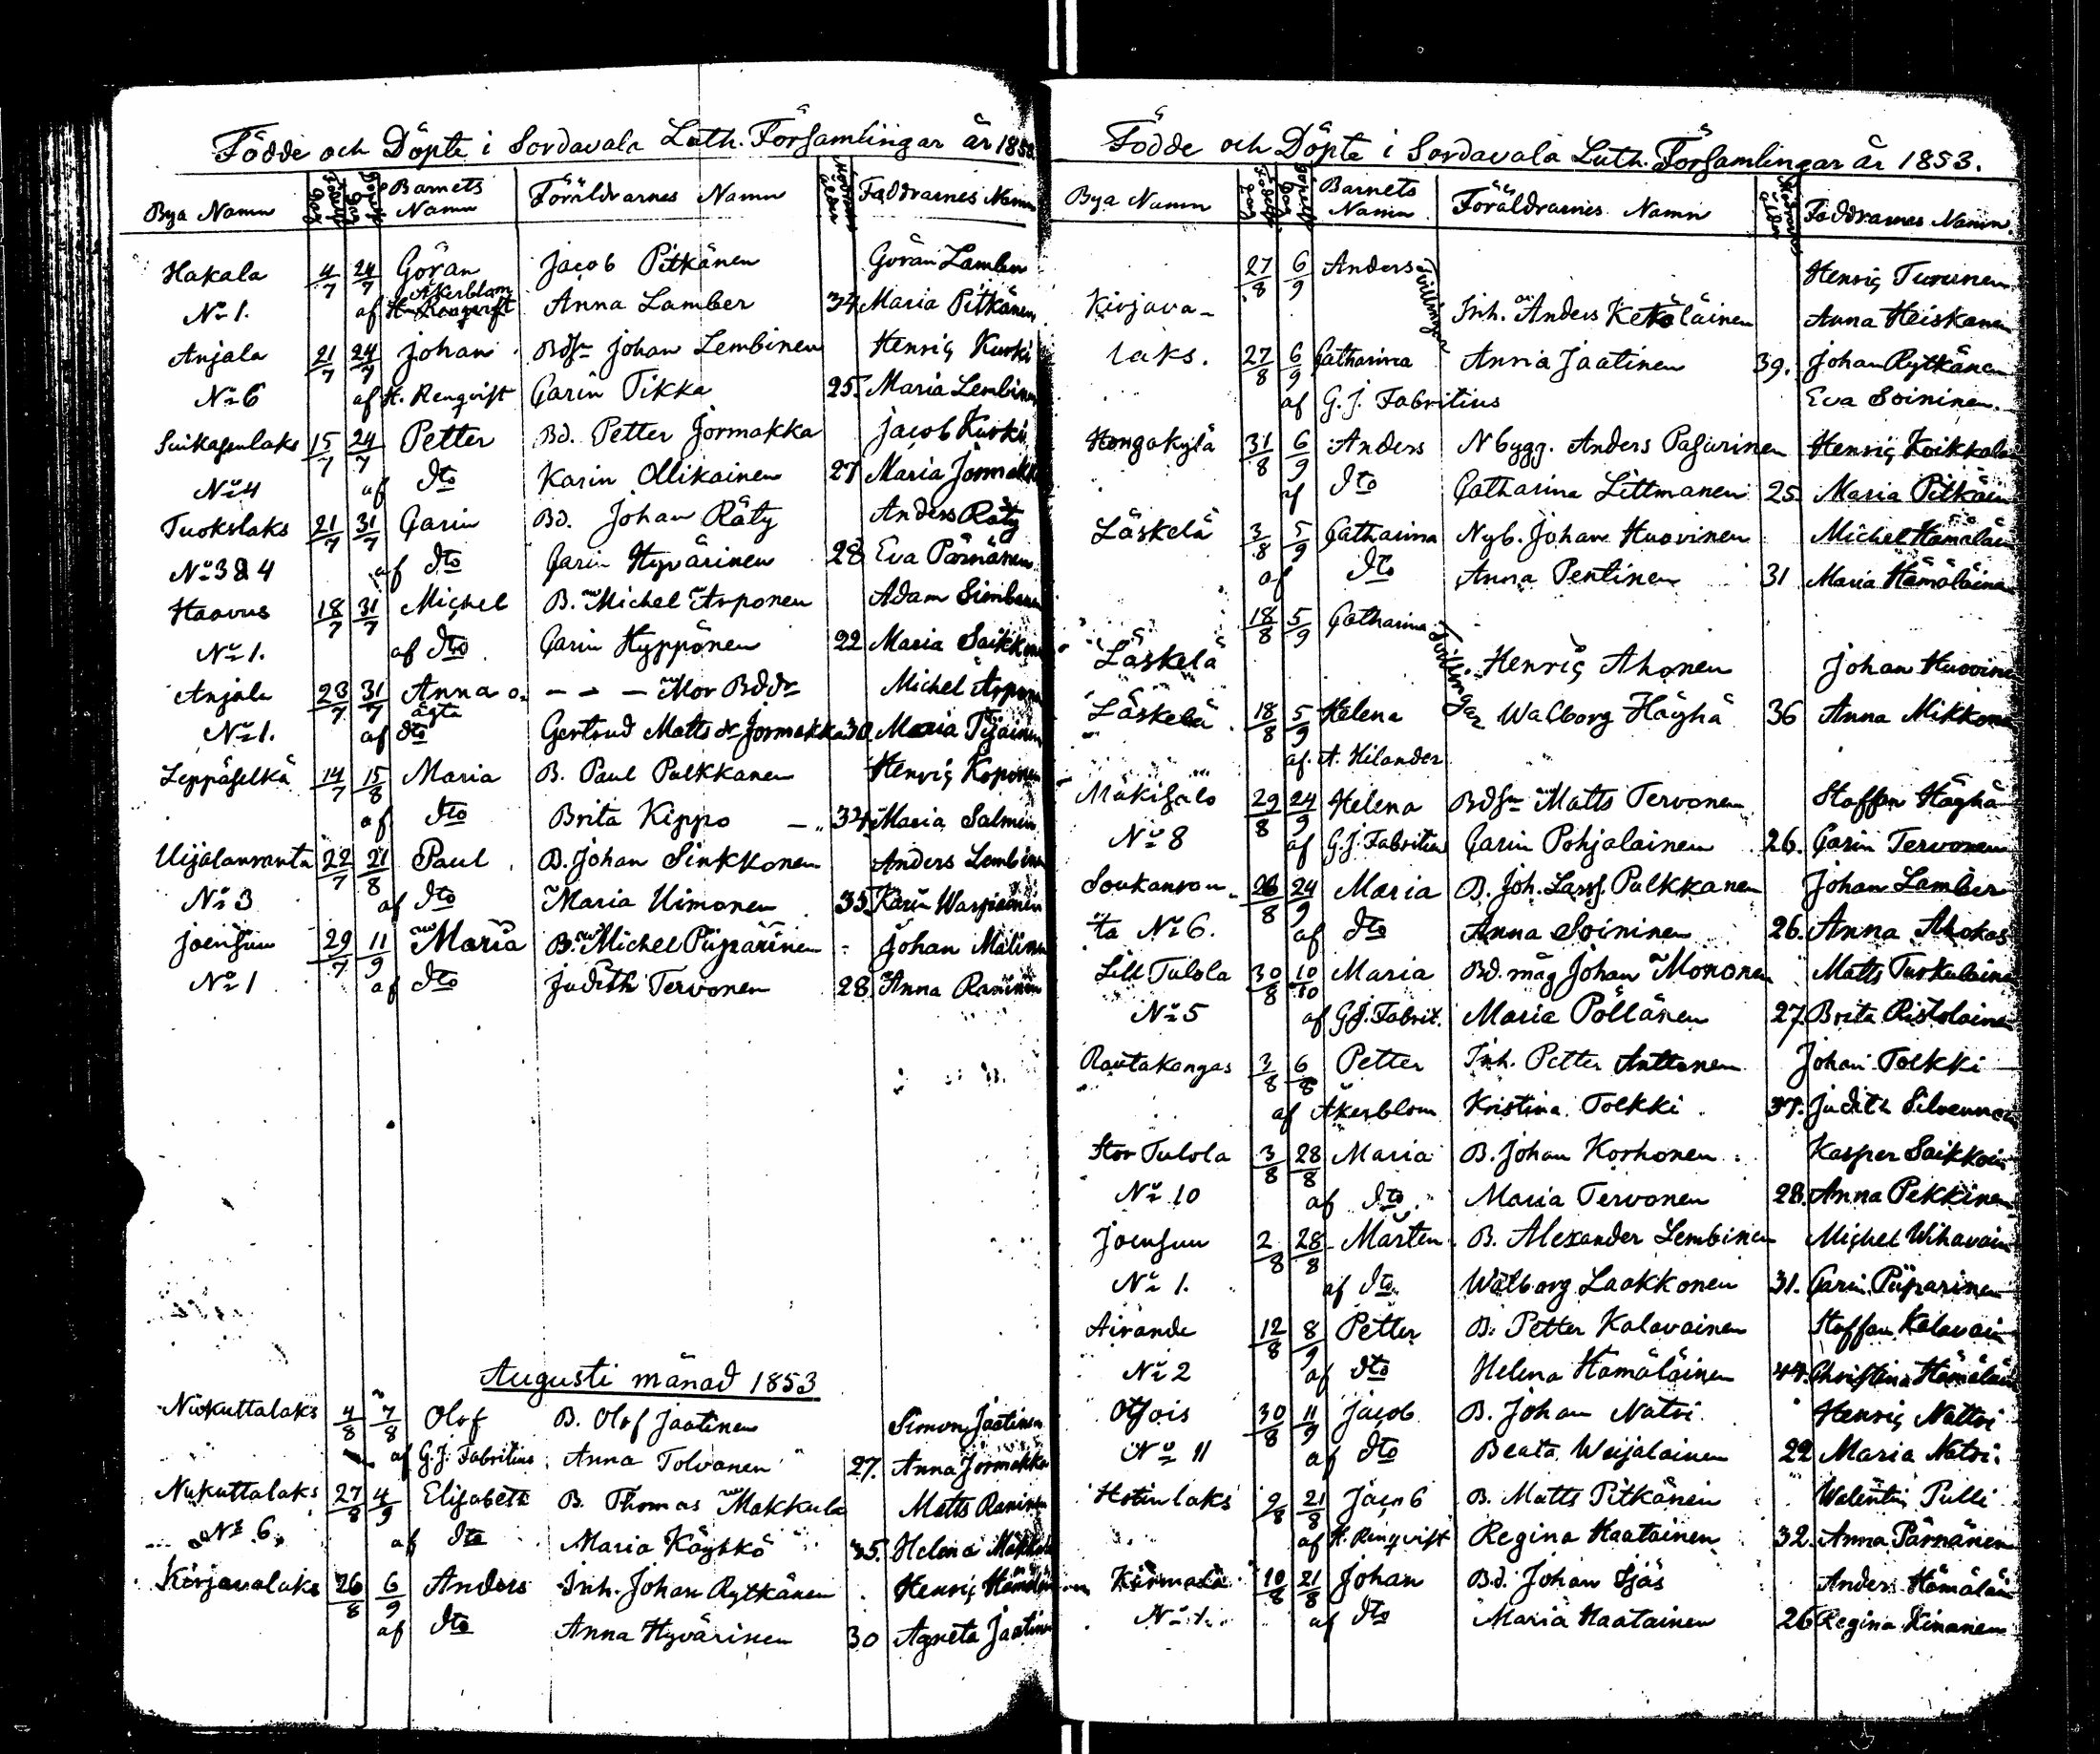 Födde och Döpte i Sordavala Luth. Församlingar år 1853
Bya Namn Födelse Dag Döpelse Dag Barnets Namn Föräldrarnes Namn Modrens ålder Faddrarnes Namn
Hakala 4/7 24/7 Göran Jacob Pitkänen Göran Lamber
No 1. af Åkerblom Anna Lamber 34 Maria Pitkänen
Anjala 21/7 24/7 Johan Bdsn Johan Lembinen Henric Kurki
No 6 af H. Renqvist Carin Tikka 25. Maria Lembinen
Suikasenlaks 15/7 24/7 Petter Bd. Petter Jormakka Jacob Kurki
No 4 af dto Karin Ollikainen 27 Maria Jormakka
Tuokslaks 21/7 31/7 Carin Bd. Johan Räty Anders Räty
No 3 & 4 af dto Carin Hyvärinen 28 Eva Pärnänen
Haavus 18/7 31/7 Michel B. Michel Arponen Adam
No 1. af dto Carin Hyppönen 22 Maria Saikkonen
Anjala 23/7 31/7 Anna o. – – – Mor Bddr Michel Arponen
No 1. ägta af dto Gertrud Matts dr Jormakka 30 Maria
Leppäselkä 14/7 15/8 Maria B. Paul Pulkkanen Henric Koponen
af dto Brita Kippo – 34. Maria Salmin
Uijalanranta 22/7 21/8 Paul B. Johan Sinkkonen Anders Lembinen
No 3 af dto Maria Uimonen 33. Karin
Joensuu 29/7 11/9 Maria B. Michel Piiparinen Johan Malinen
No 1 af dto Judith Tervonen 28. Anna Raninen
Augusti månad 1853
Niukuttalaks 4/8 7/8 Olof B. Olof Jaatinen Simon Jaatinen
af G. J. Fabritius Anna Tolvanen 27. Anna Jormakka
Nukuttalaks 27/8 4/9 Elisabeth B. Thomas Makkula Matts Raninen
No 6, af dto Maria Käyhkö 35. Helena
Kirjavalaks 26/8 6/9 Anders Inh. Johan Rytkänen Henric
af dto Anna Hyvärinen 30 Agneta Jaatinen
Födde och Döpte i Sordavala Luth. Församlingar år 1853.
Bya Namn Födelse Dag Döpelse Dag Barnets Namn Föräldrarnes Namn Modrens ålder Faddrarnes Namn.
27/8 6/9 Anders Tvillingar Henric Turunen
Kirjava- Inh. Anders Ketoläinen Anna Heiskanen
laks. 27/8 6/9 Catharina Anna Jaatinen 39. Johan Rytkänen
af G. J. Fabritius Eva Soininen.
Hongakylä 31/8 6/9 Anders Nbygg. Anders Pasurinen Henric Koikkalainen
af dto Catharina Littmanen 25. Maria Pitkäin
Läskelä 3/8 5/9 Catharina Nyb. Johan Huovinen Michel Hämäläin
af dto Anna Pentinen 31 Maria Hämäläinen
18/8 5/9 Catharina Tvillingar
Läskelä Henric Ahonen Johan Huovinen
Läskelä 18/8 5/9 Helena Walborg Häyhä 36 Anna Mikkonen
af. A. Hilander
Mäkisalo 29/8 24/9 Helena Bdsn Matts Tervonen Staffan Häyhä
No 8 af G. J. Fabritius Carin Pohjalainen 26. Carin Tervonen
Soukanran- 26/8 24/9 Maria B. Joh. Larss. Pulkkanen Johan Lamber
ta No 6. af dto Anna Soininen 26. Anna Ahokas
Lill Tulola 30/8 10/10 Maria Bd. måg Johan Mononen Matts Turkulainen
No 5 af G. J. Fabrit. Maria Pöllänen 27. Brita Ristolainen
Rautakangas 3/8 6/8 Petter Inh. Petter Anttonen Johan Tolkki
af Åkerblom Kristina Tolkki 37. Judith Silvennoinen
Stor Tulola 3/8 28/8 Maria B. Johan Korhonen Kasper Saikkoin
No 10 af dto Maria Tervonen 28. Anna Pekkinen
Joensuu 2/8 28/8 Mårten B. Alexander Lembinen Michel Wihavain
No 1. af dto Walborg Laakkonen 31. Carin Piiparinen
Airande 12/8 8/9 Petter B. Petter Kalavainen Staffan Kalavain
No 2 af dto Helena Hämäläinen 44. Christina Hämäläin
Otsois 30/8 11/9 Jacob B. Johan Natri Henric Nattri
No 11 af dto Beata Weijalainen 22 Maria Natri
Hotinlaks 9/8 21/8 Jacob B. Matts Pitkänen Walentin Pulli
af H. Renqvist Regina Haatainen 32. Anna Pärnänen
Kirmala 10/8 21/8 Johan Bd. Johan Ijäs Anders Hämäläin
No 1. af dto Maria Haatainen 26 Regina Kinanen